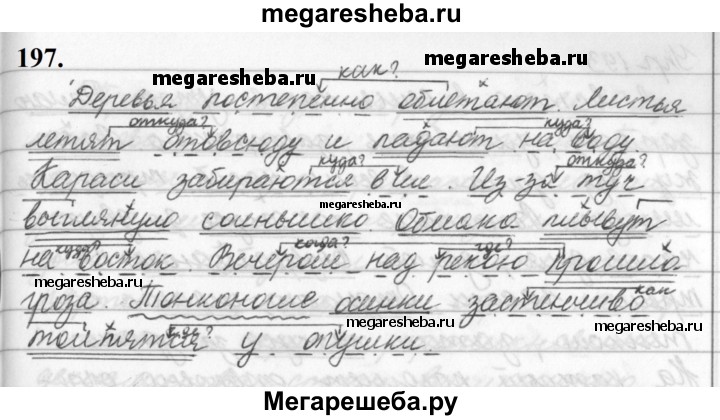 megaresheba.ru
197.
megaresheba.ru
megaresheba.ru
как?
Деревья постепенно облетают. Листья
откуда? куда?
летят отовсюду и падают на воду.
megaresheba.ru
куда? откуда?
Караси забираются в ил. Из-за туч
megaresheba.ru
выглянуло солнышко. Облака плывут
куда? когда? где?
на восток. Вечером над рекою прошла
megaresheba.ru
как
гроза. Тонконогие осинки застенчиво
megaresheba.ru
толпятся у опушки.
Мегарешеба.ру